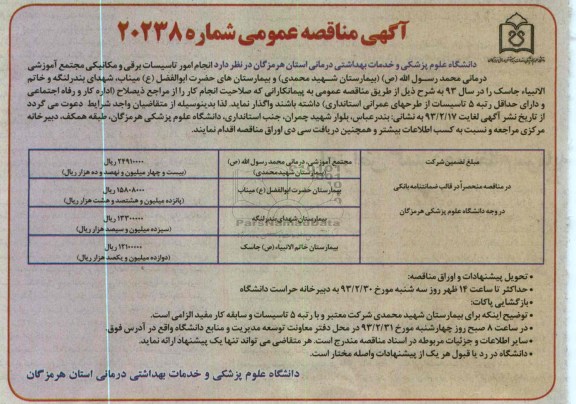 آگهی مناقصه عمومی شماره ۲۰۲۳۸
دانشگاه علوم پزشکی و خدمات بهداشتی درمانی استان هرمزگان در نظر دارد انجام امور تاسیسات برقی و مکانیکی مجتمع آموزشی
درمانی محمد رسول الله (ص) (بیمارستان شهید محمدی) و بیمارستان های حضرت ابوالفضل (ع) میناب، شهدای بندرلنگه و خاتم
الانبیاء جاسک را در سال ۹۳ به شرح ذیل از طریق مناقصه عمومی به پیمانکارانی که صلاحیت انجام کار را از مراجع ذیصلاح (اداره کار و رفاه اجتماعی
و دارای حداقل رتبه ۵ تاسیسات از طرحهای عمرانی استانداری) داشته باشند واگذار نماید. لذا بدینوسیله از متقاضیان واجد شرایط دعوت می گردد
از تاریخ نشر آگهی لغایت ۹۳/۲/۱۷ به نشانی: بندرعباس، بلوار شهید چمران، جنب استانداری، دانشگاه علوم پزشکی هرمزگان، طبقه همکف، دبیرخانه
مرکزی مراجعه و نسبت به کسب اطلاعات بیشتر و همچنین دریافت سی دی اوراق مناقصه اقدام نمایند.
مبلغ تضمین شرکت
در مناقصه منحصراً در قالب ضمانتنامه بانکی
در وجه دانشگاه علوم پزشکی هرمزگان
مجتمع آموزشی، درمانی محمد رسول الله (ص)
(بیمارستان شهید محمدی)
۲۴۹۱۰۰۰۰ ریال
(بیست و چهار میلیون و نهصد و ده هزار ریال)
بیمارستان حضرت ابوالفضل (ع) میناب
۱۵۸۰۸۰۰۰ ریال
(پانزده میلیون و هشتصد و هشت هزار ریال)
بیمارستان شهدای بندرلنگه
۱۳۳۰۰۰۰۰ ریال
(سیزده میلیون و سیصد هزار ریال)
بیمارستان خاتم الانبیاء (ص) جاسک
۱۲۱۰۰۰۰۰ ریال
(دوازده میلیون و یکصد هزار ریال)
ParsNamadData
• تحویل پیشنهادات و اوراق مناقصه:
• حداکثر تا ساعت ۱۴ ظهر روز سه شنبه مورخ ۹۳/۲/۳۰ به دبیرخانه حراست دانشگاه
• بازگشایی پاکات:
• توضیح اینکه برای بیمارستان شهید محمدی شرکت معتبر و با رتبه ۵ تاسیسات و سابقه کار مفید الزامی است.
• در ساعت ۸ صبح روز چهارشنبه مورخ ۹۳/۲/۳۱ در محل دفتر معاونت توسعه مدیریت و منابع دانشگاه واقع در آدرس فوق.
• سایر اطلاعات و جزئیات مربوطه در اسناد مناقصه مندرج است. هر متقاضی می تواند تنها یک پیشنهاد ارائه نماید.
• دانشگاه در رد یا قبول هر یک از پیشنهادات واصله مختار است.
دانشگاه علوم پزشکی و خدمات بهداشتی درمانی استان هرمزگان